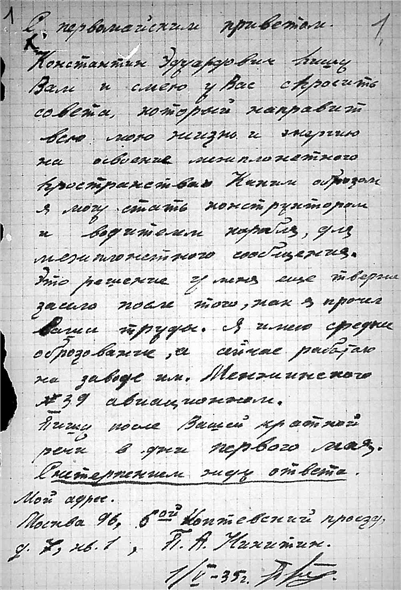 1 С первомайским приветом. 1
Константин Эдуардович пишу
Вам и смею у Вас спросить
совета, который направит
всю мою жизнь и энергию
на освоение межпланетного
пространства. Каким образом
я могу стать конструктором
и водителем корабля, для
межпланетного сообщения.
Это решение у меня еще тверже
засело после того, как я прочел
Ваши труды. Я имею средне
образование, а сейчас работаю
на заводе им. Менжинского
№ 39 авиационном.
Пишу после Вашей краткой
речи в дни первого мая.
С нетерпением жду ответа.
Мой адрес.
Москва 96, 6ой Коптевский проезд,
д. 7, кв. 1, П. А. Никитин.
1/V-35г.